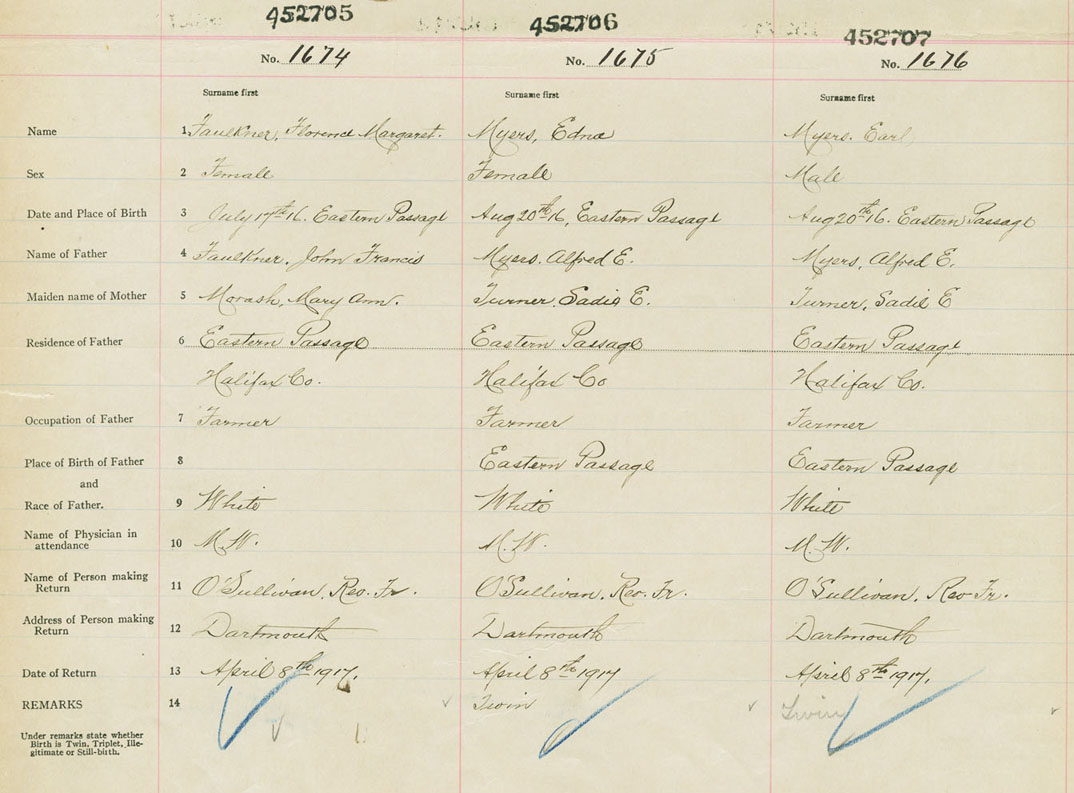 452705 452706 452707
No. 1674 No. 1675 No. 1676
Surname first Surname first Surname first
Name 1 Faulkner, Florence Margaret. Myers, Edna Myers. Earl
Sex 2 Female Female Male
Date and Place of Birth 3 July 17th 16. Eastern Passage Aug 20th 16, Eastern Passage Aug 20th 16. Eastern Passage
Name of Father 4 Faulkner, John Francis Myers. Alfred E. Myers, Alfred E.
Maiden name of Mother 5 Morash, Mary Ann. Turner, Sadie E. Turner, Sadie E
Residence of Father 6 Eastern Passage Eastern Passage Eastern Passage
Halifax Co. Halifax Co Halifax Co.
Occupation of Father 7 Farmer Farmer Farmer
Place of Birth of Father 8 Eastern Passage Eastern Passage
and
Race of Father. 9 White White White
Name of Physician in
attendance 10 M.W. M.W. M.W.
Name of Person making
Return 11 O'Sullivan, Rev. Fr. O'Sullivan, Rev. Fr. O'Sullivan, Rev Fr.
Address of Person making
Return 12 Dartmouth Dartmouth Dartmouth
Date of Return 13 April 8th 1917. April 8th 1917 April 8th 1917.
REMARKS 14 Twin Twin
Under remarks state whether
Birth is Twin, Triplet, Ille-
gitimate or Still-birth.